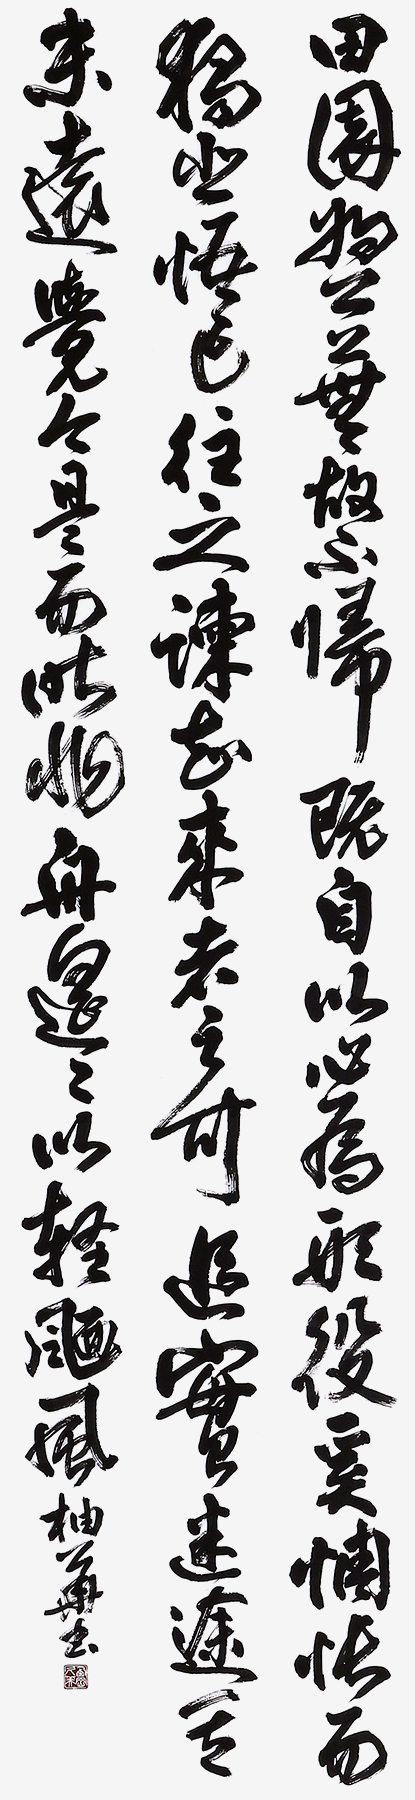 田園将蕪胡不歸既自以心為形役奚惆悵而
獨悲悟已往之諫知來者之可追實迷途其
未遠覺今是而昨非舟遙々以軽颺風柚華書